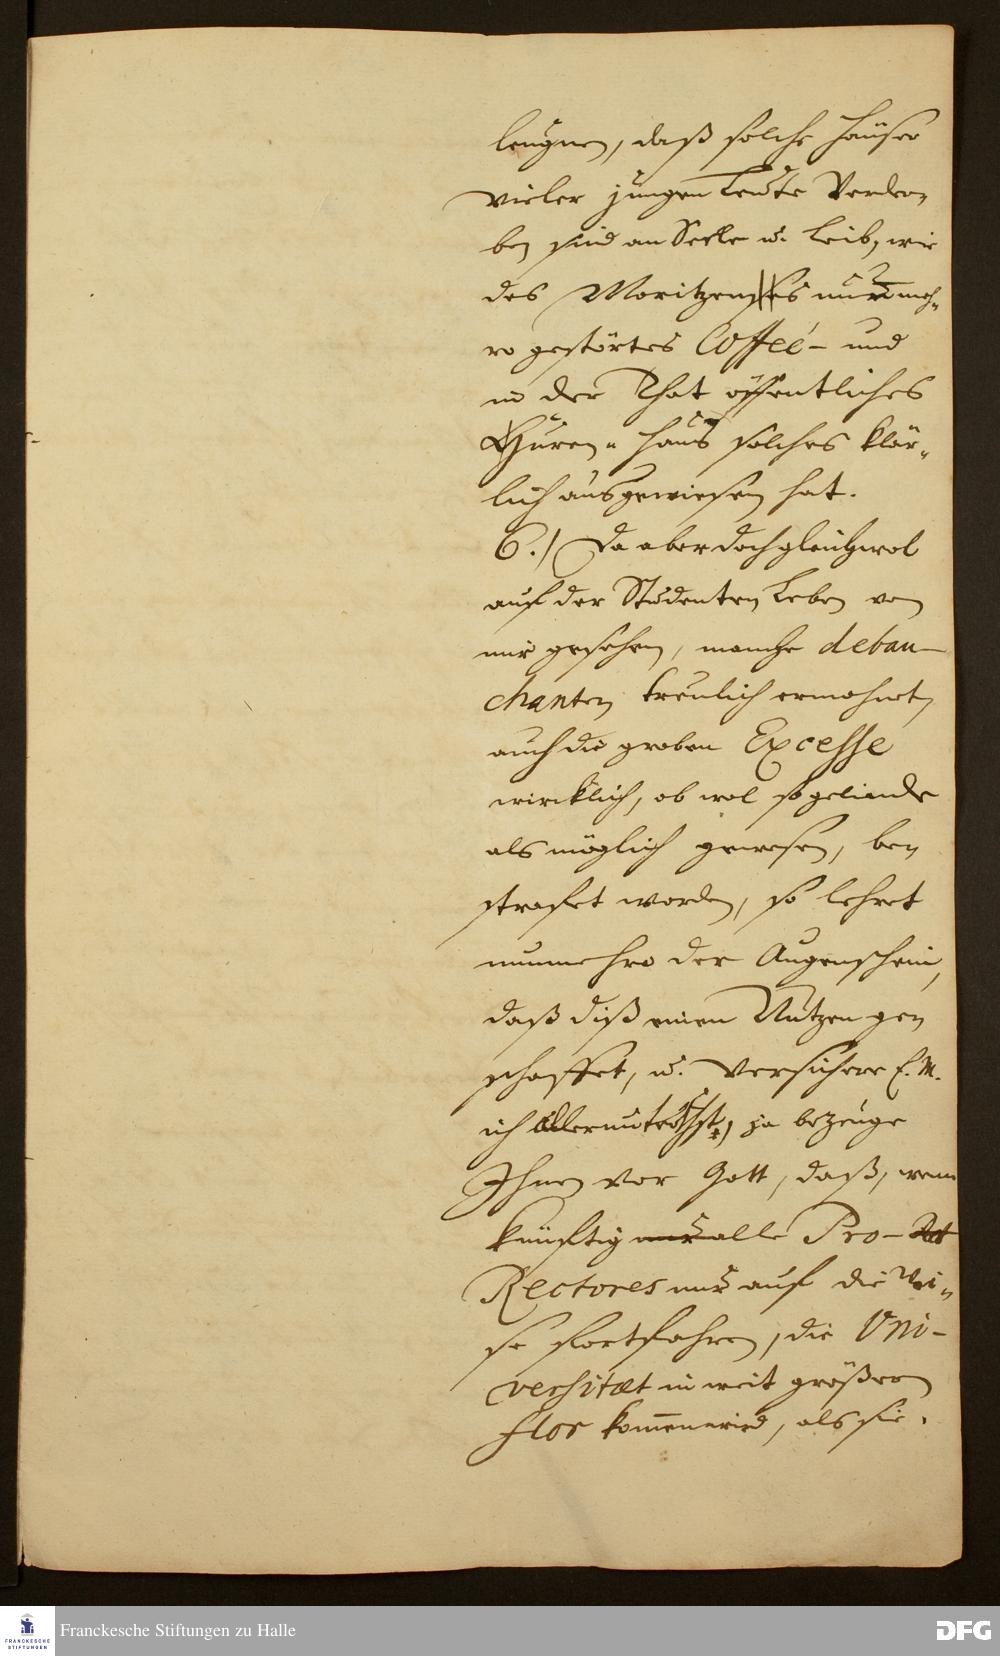 leugnen, daß solche Häuser
vieler jungen Leute Verder-
ben sind an Seele u. Leib, wie
des Moritzens nunmeh-
ro gestörtes Coffeé- und
in der That öffentliches
Huren-Haus solches klär-
lich ausgewiesen hat.
6.) Da aber doch gleichwol
auf der Studenten Leben von
mir gesehen, manche debau-
chanten treulich ermahnet,
auch die groben Excesse
wircklich, ob wol so gelinde
als möglich gewesen, be-
strafet worden, so lehret
nunmehro der Augenschein,
daß diß einen Nutzen ge-
schaffet, u. versichere E. M.
ich allerunterthst, ja bezeuge
Ihnen vor Gott, daß, wenn
künftig nur alle Pro-
Rectores nur auf die Wei-
se fortfahren, die Uni-
versitæt in weit größern
Flor kommen wird, als sie
Franckesche Stiftungen zu Halle
FRANCKESCHE
STIFTUNGEN
DFG